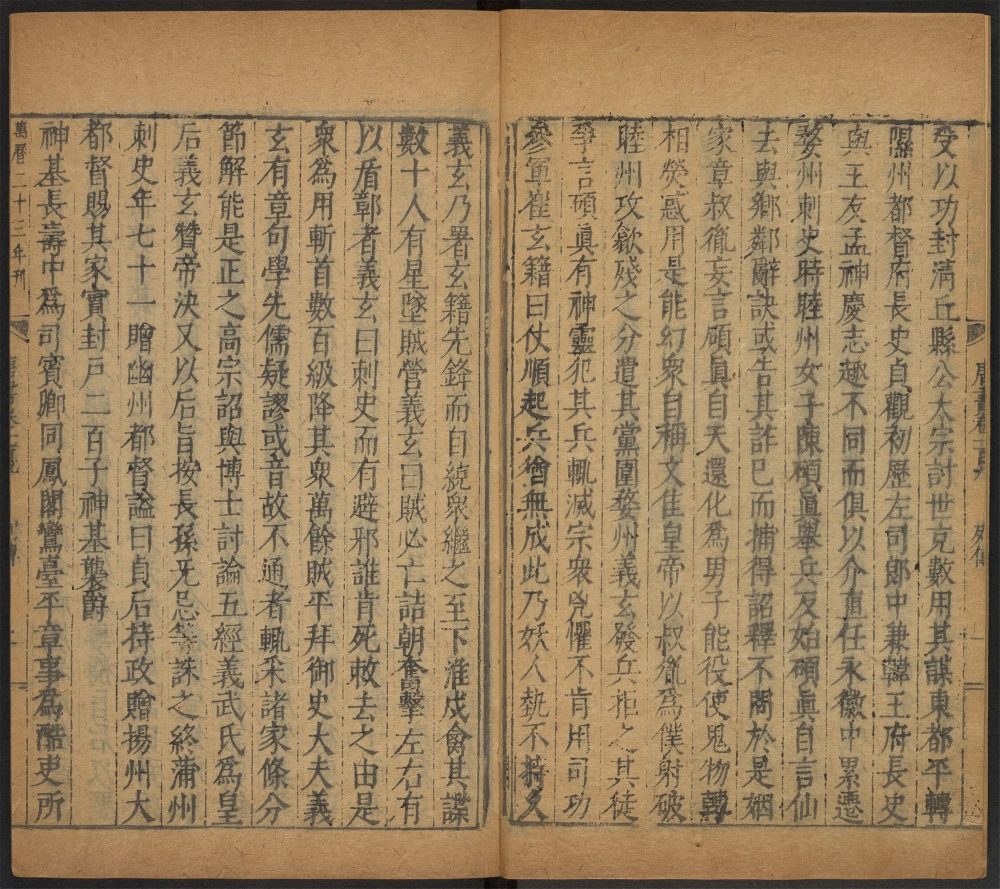 受以功封清丘縣公太宗討世充數用其謀東都平轉
隰州都督府長史貞觀初歷左司郎中兼韓王府長史
與王友孟神慶志趣不同而俱以介直任永徽中累遷
婺州刺史時睦州女子陳碩眞舉兵反始碩眞自言仙
去與鄉鄰辭訣或告其詐已而捕得詔釋不問於是姻
家章叔胤妄言碩眞自天還化爲男子能役使鬼物轉
相熒惑用是能幻衆自稱文佳皇帝以叔胤爲僕射破
睦州攻歙殘之分遣其黨圍婺州義玄發兵拒之其徒
爭言碩眞有神靈犯其兵輒滅宗衆兇懼不肯用司功
參軍崔玄籍曰仗順起兵猶無成此乃妖人埶不持久
義玄乃署玄籍先鋒而自統衆繼之至下淮戍禽其諜
數十人有星墜賊營義玄曰賊必亡詰朝奮擊左右有
以盾鄣者義玄曰刺史而有避邪誰肯死敕去之由是
衆爲用斬首數百級降其衆萬餘賊平拜御史大夫義
玄有章句學先儒疑謬或音故不通者輒采諸家條分
節解能是正之高宗詔與博士討論五經義武氏爲皇
后義玄贊帝決又以后旨按長孫无忌等誅之終蒲州
刺史年七十一贈幽州都督謚曰貞后持政贈揚州大
都督賜其家實封戸二百子神基襲爵
神基長壽中爲司賓卿同鳳閣鸞臺平章事爲酷吏所
萬曆二十三年刊